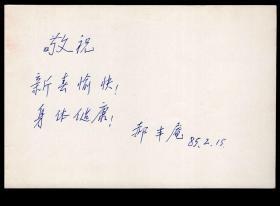 敬祝
新春愉快!
身体健康!
郝丰庵 85.2.15.